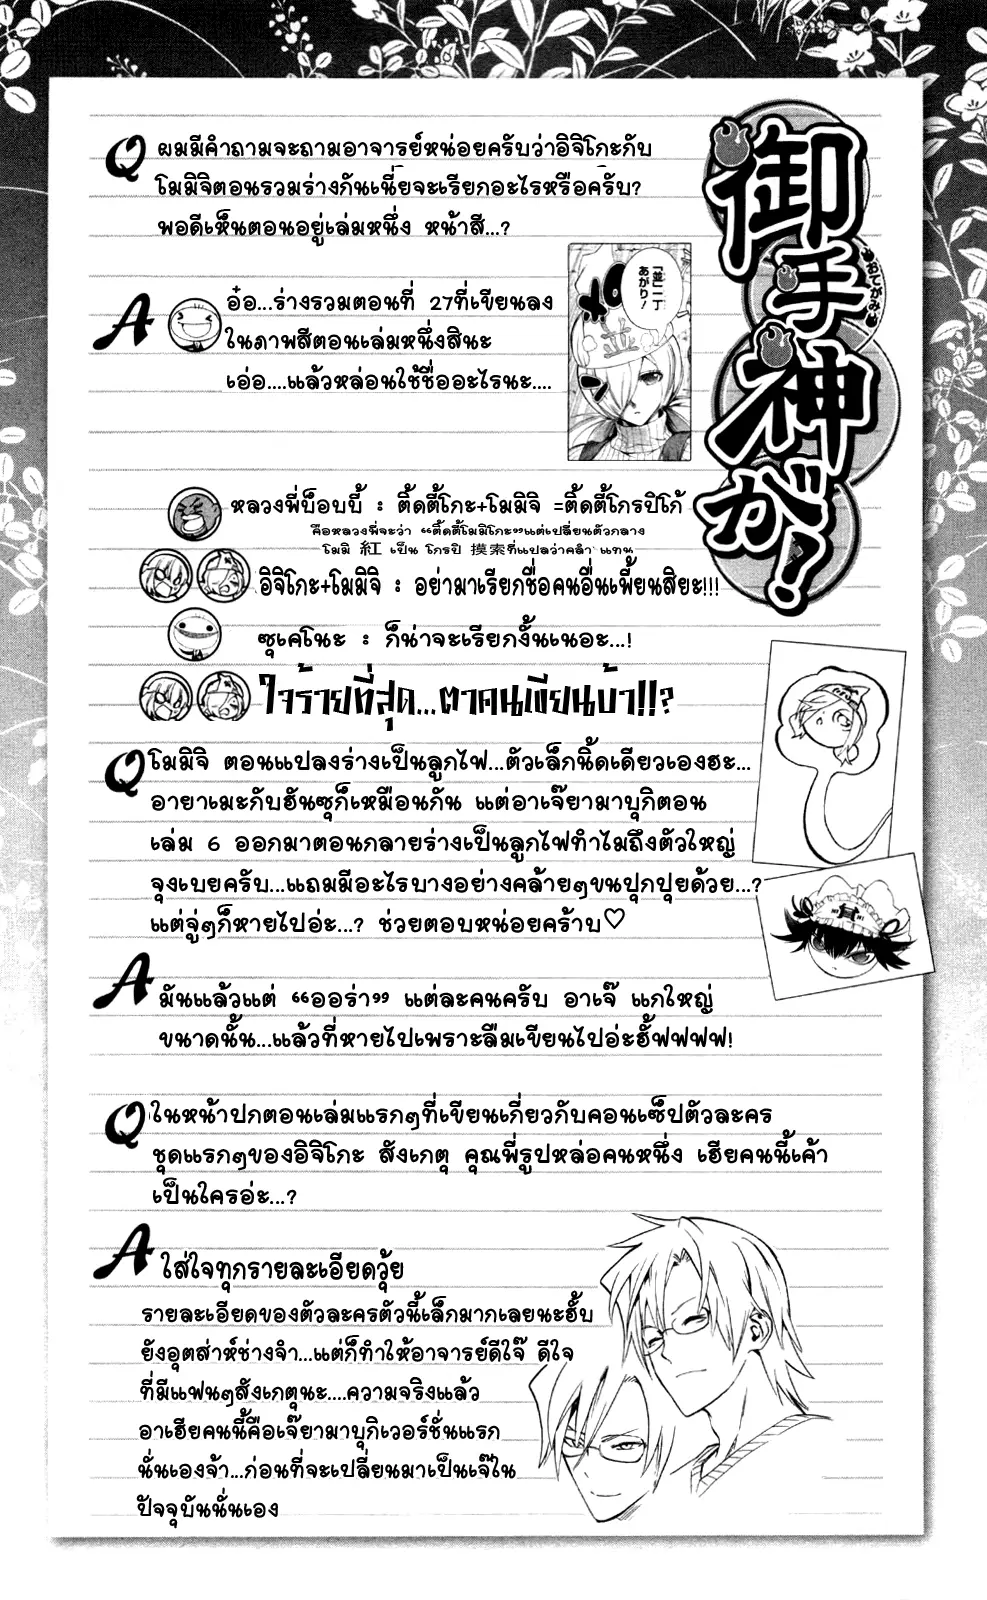 御手神が！
おてがみ
Q ผมมีคำถามจะถามอาจารย์หน่อยครับว่าอิจิโกะกับ
โมมิจิตอนรวมร่างกันเนี่ยจะเรียกอะไรหรือครับ?
พอดีเห็นตอนอยู่เล่มหนึ่ง หน้าสี...?
A อ๋อ...ร่างรวมตอนที่ 27ที่เขียนลง
ในภาพสีตอนเล่มหนึ่งสินะ
เอ่อ....แล้วหล่อนใช้ชื่ออะไรนะ....
「並」一丁
あがり！
並
หลวงพี่บ็อบบี้ : ติ้ดตี้โกะ+โมมิจิ =ติ้ดตี้โกรปิโก้
คือหลวงพี่จะว่า “ติ้ดตี้โมมิโกะ”แต่เปลี่ยนตัวกลาง
โมมิ 紅 เป็น โกรปิ 摸索ที่แปลว่าคลำ แทน
อิจิโกะ+โมมิจิ : อย่ามาเรียกชื่อคนอื่นเพี้ยนสิยะ!!!
ซุเคโนะ : ก็น่าจะเรียกงั้นเนอะ...!
ใจร้ายที่สุด...ตาคนเขียนบ้า!!!?
Q โมมิจิ ตอนแปลงร่างเป็นลูกไฟ...ตัวเล็กนิ้ดเดียวเองฮะ...
อายาเมะกับฮันซุก็เหมือนกัน แต่อาเจ๊ยามาบุกิตอน
เล่ม 6 ออกมาตอนกลายร่างเป็นลูกไฟทำไมถึงตัวใหญ่
จุงเบยครับ...แถมมีอะไรบางอย่างคล้ายๆขนปุกปุยด้วย...?
แต่จู่ๆก็หายไปอ่ะ...? ช่วยตอบหน่อยคร้าบ♡
A มันแล้วแต่ “ออร่า” แต่ละคนครับ อาเจ๊ แกใหญ่
ขนาดนั้น...แล้วที่หายไปเพราะลืมเขียนไปอ่ะฮั้ฟฟฟฟ!
Q ในหน้าปกตอนเล่มแรกๆที่เขียนเกี่ยวกับคอนเซ็ปตัวละคร
ชุดแรกๆของอิจิโกะ สังเกตุ คุณพี่รูปหล่อคนหนึ่ง เฮียคนนี้เค้า
เป็นใครอ่ะ...?
A ใส่ใจทุกรายละเอียดวุ้ย
รายละเอียดของตัวละครตัวนี้เล็กมากเลยนะฮั้บ
ยังอุตส่าห์ช่างจำ...แต่ก็ทำให้อาจารย์ดีใจ๊ ดีใจ
ที่มีแฟนๆสังเกตุนะ....ความจริงแล้ว
อาเฮียคนนี้คือเจ๊ยามาบุกิเวอร์ชั่นแรก
นั่นเองจ้า...ก่อนที่จะเปลี่ยนมาเป็นเจ๊ใน
ปัจจุบันนั่นเอง